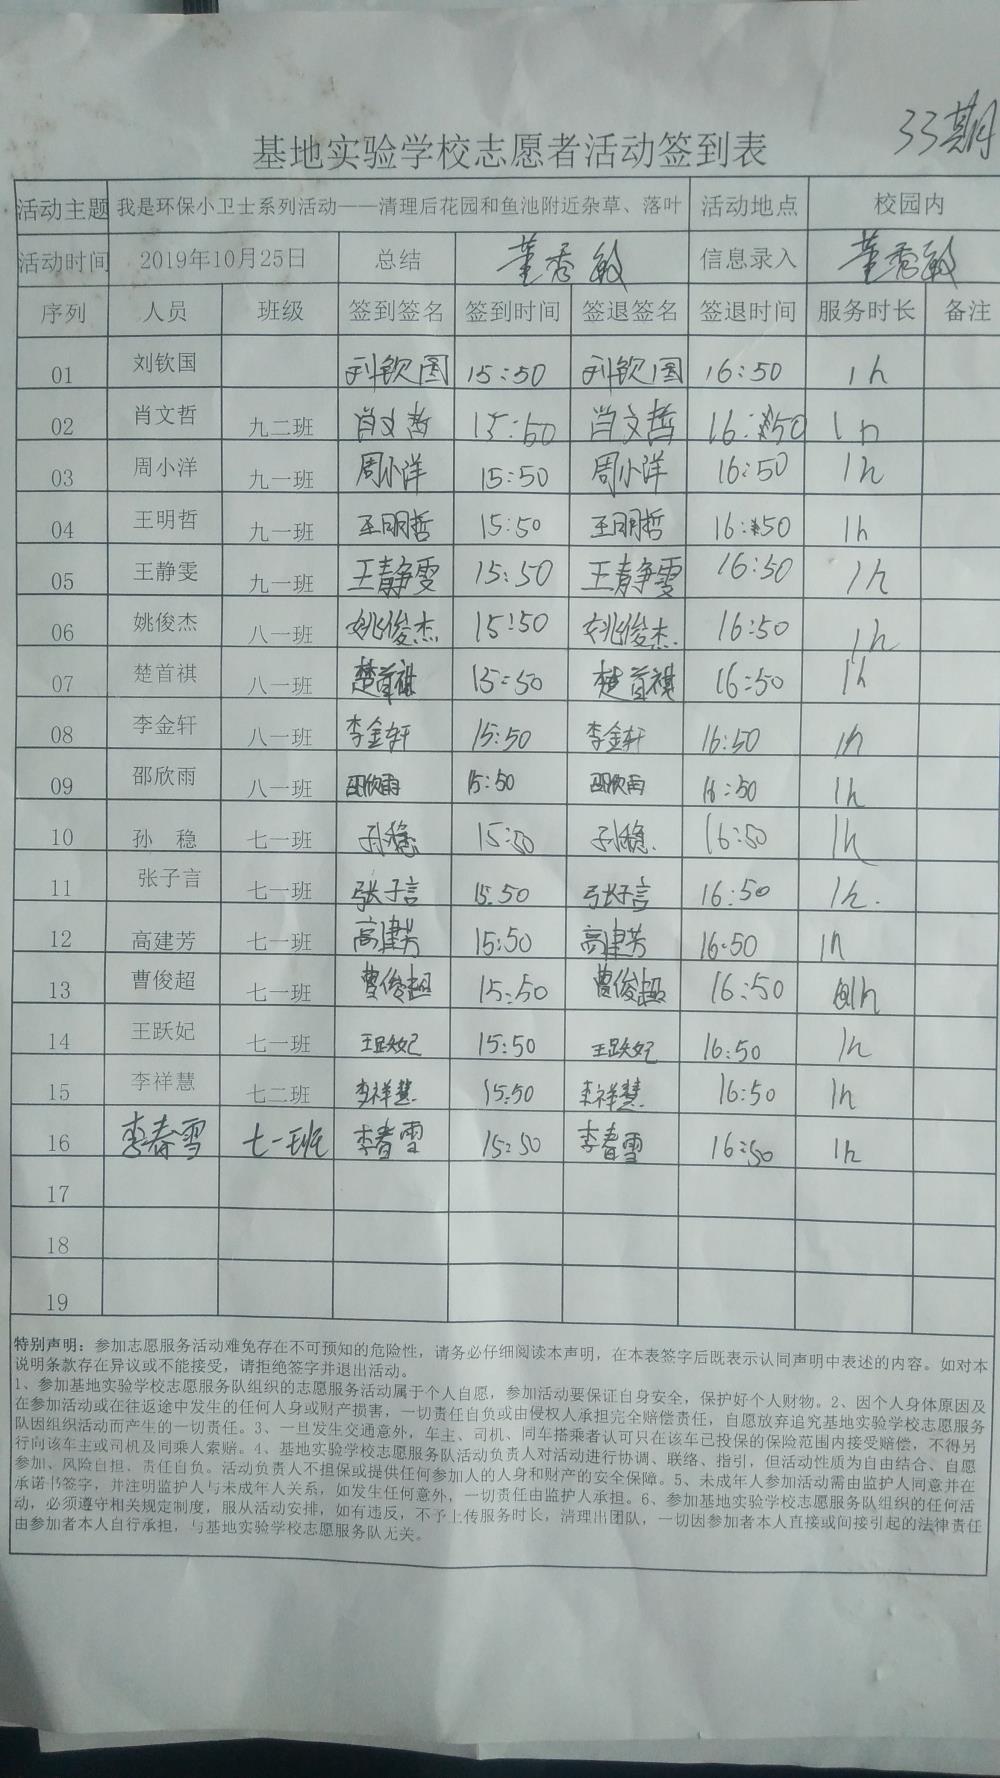 33期
基地实验学校志愿者活动签到表
活动主题 我是环保小卫士系列活动——清理后花园和鱼池附近杂草、落叶 活动地点 校园内
活动时间 2019年10月25日 总结 董秀敏 信息录入 董秀敏
序列 人员 班级 签到签名 签到时间 签退签名 签退时间 服务时长 备注
01 刘钦国 刘钦国 15:50 刘钦国 16:50 1h
02 肖文哲 九二班 肖文哲 15:50 肖文哲 16:50 1h
03 周小洋 九一班 周小洋 15:50 周小洋 16:50 1h
04 王明哲 九一班 王明哲 15:50 王明哲 16:50 1h
05 王静雯 九一班 王静雯 15:50 王静雯 16:50 1h
06 姚俊杰 八一班 姚俊杰 15:50 姚俊杰 16:50 1h
07 楚首祺 八一班 楚首祺 15:50 楚首祺 16:50 1h
08 李金轩 八一班 李金轩 15:50 李金轩 16:50 1h
09 邵欣雨 八一班 邵欣雨 15:50 邵欣雨 16:50 1h
10 孙 稳 七一班 孙稳 15:50 孙稳 16:50 1h
11 张子言 七一班 张子言 15:50 张子言 16:50 1h
12 高建芳 七一班 高建芳 15:50 高建芳 16:50 1h
13 曹俊超 七一班 曹俊超 15:50 曹俊超 16:50 1h
14 王跃妃 七一班 王跃妃 15:50 王跃妃 16:50 1h
15 李祥慧 七二班 李祥慧 15:50 李祥慧 16:50 1h
16 李春雪 七一班 李春雪 15:50 李春雪 16:50 1h
17
18
19
特别声明：参加志愿服务活动难免存在不可预知的危险性，请务必仔细阅读本声明，在本表签字后既表示认同声明中表述的内容。如对本
说明条款存在异议或不能接受，请拒绝签字并退出活动。
1、参加基地实验学校志愿服务队组织的志愿服务活动属于个人自愿，参加活动要保证自身安全，保护好个人财物。2、因个人身体原因及
在参加活动或在往返途中发生的任何人身或财产损害，一切责任自负或由侵权人承担完全赔偿责任，自愿放弃追究基地实验学校志愿服务
队因组织活动而产生的一切责任。3、一旦发生交通意外，车主、司机、同车搭乘者认可只在该车已投保的保险范围内接受赔偿，不得另
行向该车主或司机及同乘人索赔。4、基地实验学校志愿服务队活动负责人对活动进行协调、联络、指引，但活动性质为自由结合、自愿
参加、风险自担、责任自负。活动负责人不担保或提供任何参加人的人身和财产的安全保障。5、未成年人参加活动需由监护人同意并在
承诺书签字，并注明监护人与未成年人关系，如发生任何意外，一切责任由监护人承担。6、参加基地实验学校志愿服务队组织的任何活
动，必须遵守相关规定制度，服从活动安排，如有违反，不予上传服务时长，清理出团队，一切因参加者本人直接或间接引起的法律责任
由参加者本人自行承担，与基地实验学校志愿服务队无关。